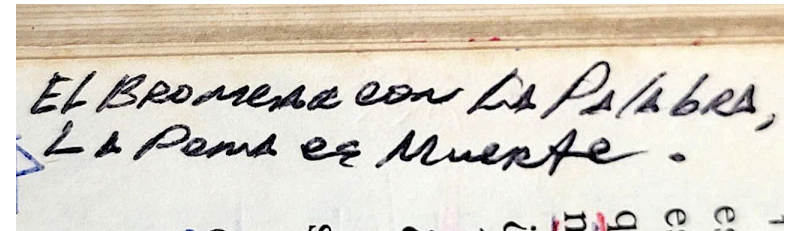 El Bromear con La Palabra,
La Pena es Muerte.